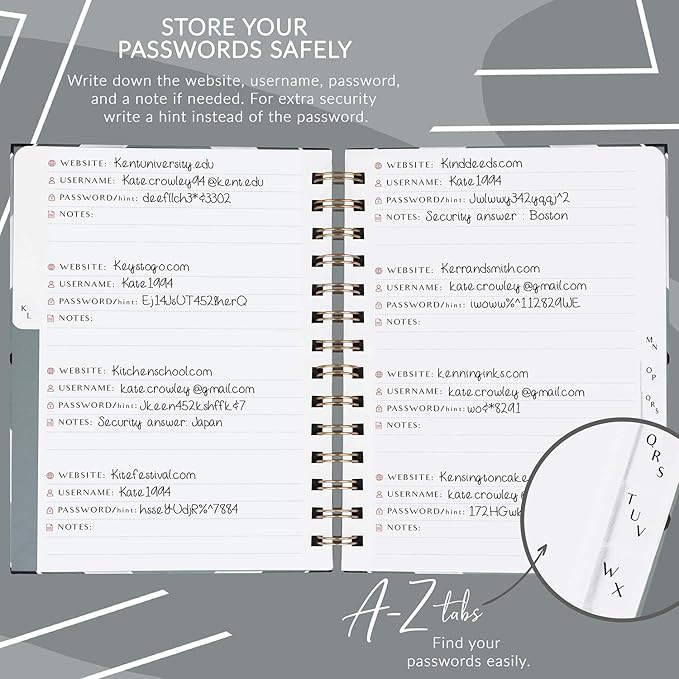 STORE YOUR
PASSWORDS SAFELY
Write down the website, username, password,
and a note if needed. For extra security
write a hint instead of the password.
WEBSITE: Kentuniversity.edu
USERNAME: Katecrowley94@kent.edu
PASSWORD/hint: deefllch3*&3302
NOTES:
WEBSITE: Keystogo.com
USERNAME: Kate1994
PASSWORD/hint:
NOTES:
WEBSITE: Kitchenschool.com
USERNAME: kate.crowley@gmail.com
PASSWORD/hint: Jkeen452kshffk&7
NOTES: Security answer: Japan
WEBSITE: Kitefestival.com
USERNAME: Kate1994
PASSWORD/hint:
NOTES:
K
L
WEBSITE: Kinddeeds.com
USERNAME: Kate1994
PASSWORD/hint: Jwlwwy342yqqj^2
NOTES: Security answer : Boston
WEBSITE: Kerrandsmith.com
USERNAME: kate.crowley@gmail.com
PASSWORD/hint: iwoww%^112829WE
NOTES:
WEBSITE: kenninginks.com
USERNAME: kate.crowley@gmail.com
PASSWORD/hint: wo&*8291
NOTES:
WEBSITE: Kensingtoncake
USERNAME: kate.crowley@
PASSWORD/hint:
NOTES:
MN
OP
QRS
QRS
TUV
WX
A-Z tabs
Find your
passwords easily.